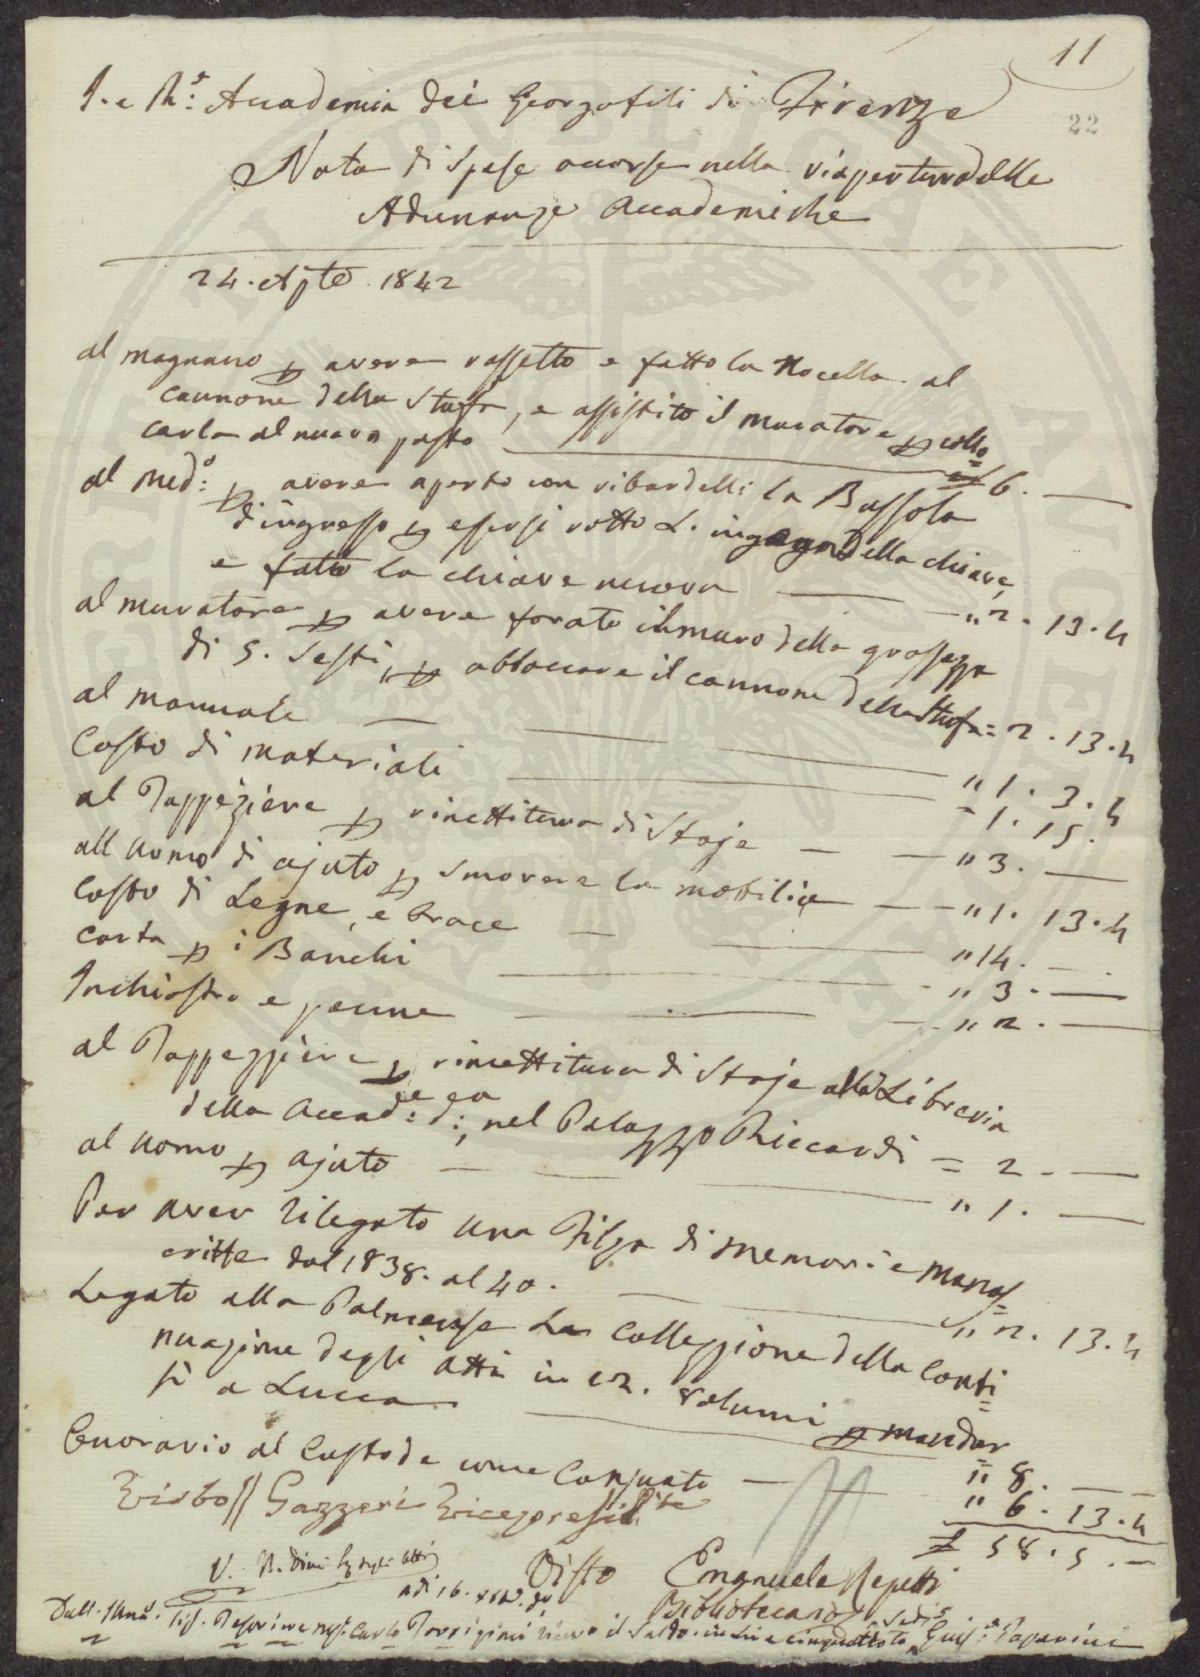 11
22
I. e R.e Accademia dei Georgofili di Firenze
Nota di Spese occorse nella riapertura delle
Adunanze Accademiche
24. Aple 1842
al magnano p avere rassetto e fatto la Nocella al
cannone della Stufa, e assistito il muratore p collo=
carla al nuovo posto 6. —
al med.o p avere aperto con ribardelli la Bussola
d'ingresso p essersi rotto L. ingegno della chiave,
e fatto la chiave nuova — " 2. 13. 4
al muratore p avere forato il muro della grossezza
di 5. Sesti, p abboccare il cannone della Stufa = 2. 13. 4
al manuale — " 1. 3. 4
Costo di materiali — 1. 15.
al Tappeziere p rimettitura di Stoje — " 3. —
all uomo di ajuto p smovere la mobilia — " 1. 13. 4
Costo di Legne, e brace — " 14. —
carta p i Banchi — " 3. —
Inchiostro e penne — " 2. —
al Tappezziere p rimettitura di Stoje alla Libreria
della Accad.: d:, nel Palazzo Riccardi = 2. —
al uomo p ajuto — " 1. —
Per aver rilegato una Filza di memorie manos=
critte dal 1838. al 40. — " 2. 13. 4
Legato alla Palmense La Collezzione della Conti=
nuazione degli Atti in 12. volumi p mandar=
si a Lucca — " 8. —
Onorario al Custode come Consueto — " 6. 13. 4
£ 58. 5. —
Visto // Gazzeri Vicepresid.te
V. R. Dini Seg degli Atti
Visto Emanuele Repetti
Bibliotecario
adi 16.
Dall. Carlo Torrigiani il Saldo in Lire cinquantotto